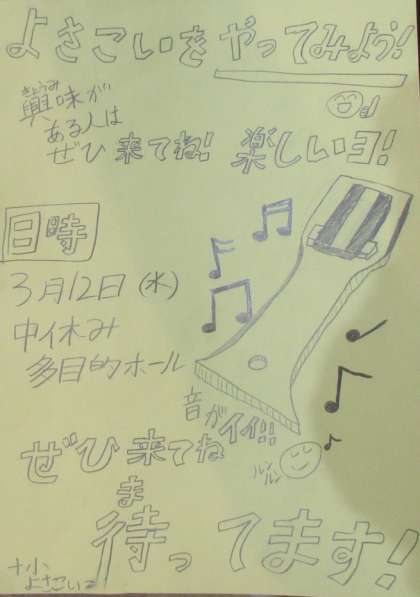 よさこいをやってみよう!
きょうみ
興味が
ある人は
ぜひ来てね! 楽しいヨ!
日時
3月12日(水)
中休み
多目的ホール
音がイイ!!
ルンルン
ぜひ来てね
ま
待ってます!
十小
よさこい